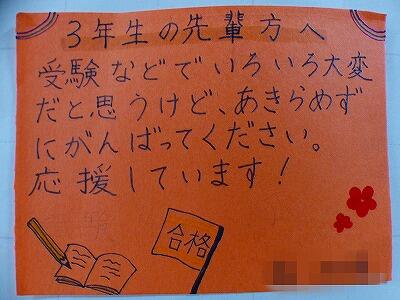 3年生の先輩方へ
受験などでいろいろ大変
だと思うけど、あきらめず
にがんばってください。
応援しています!
合格